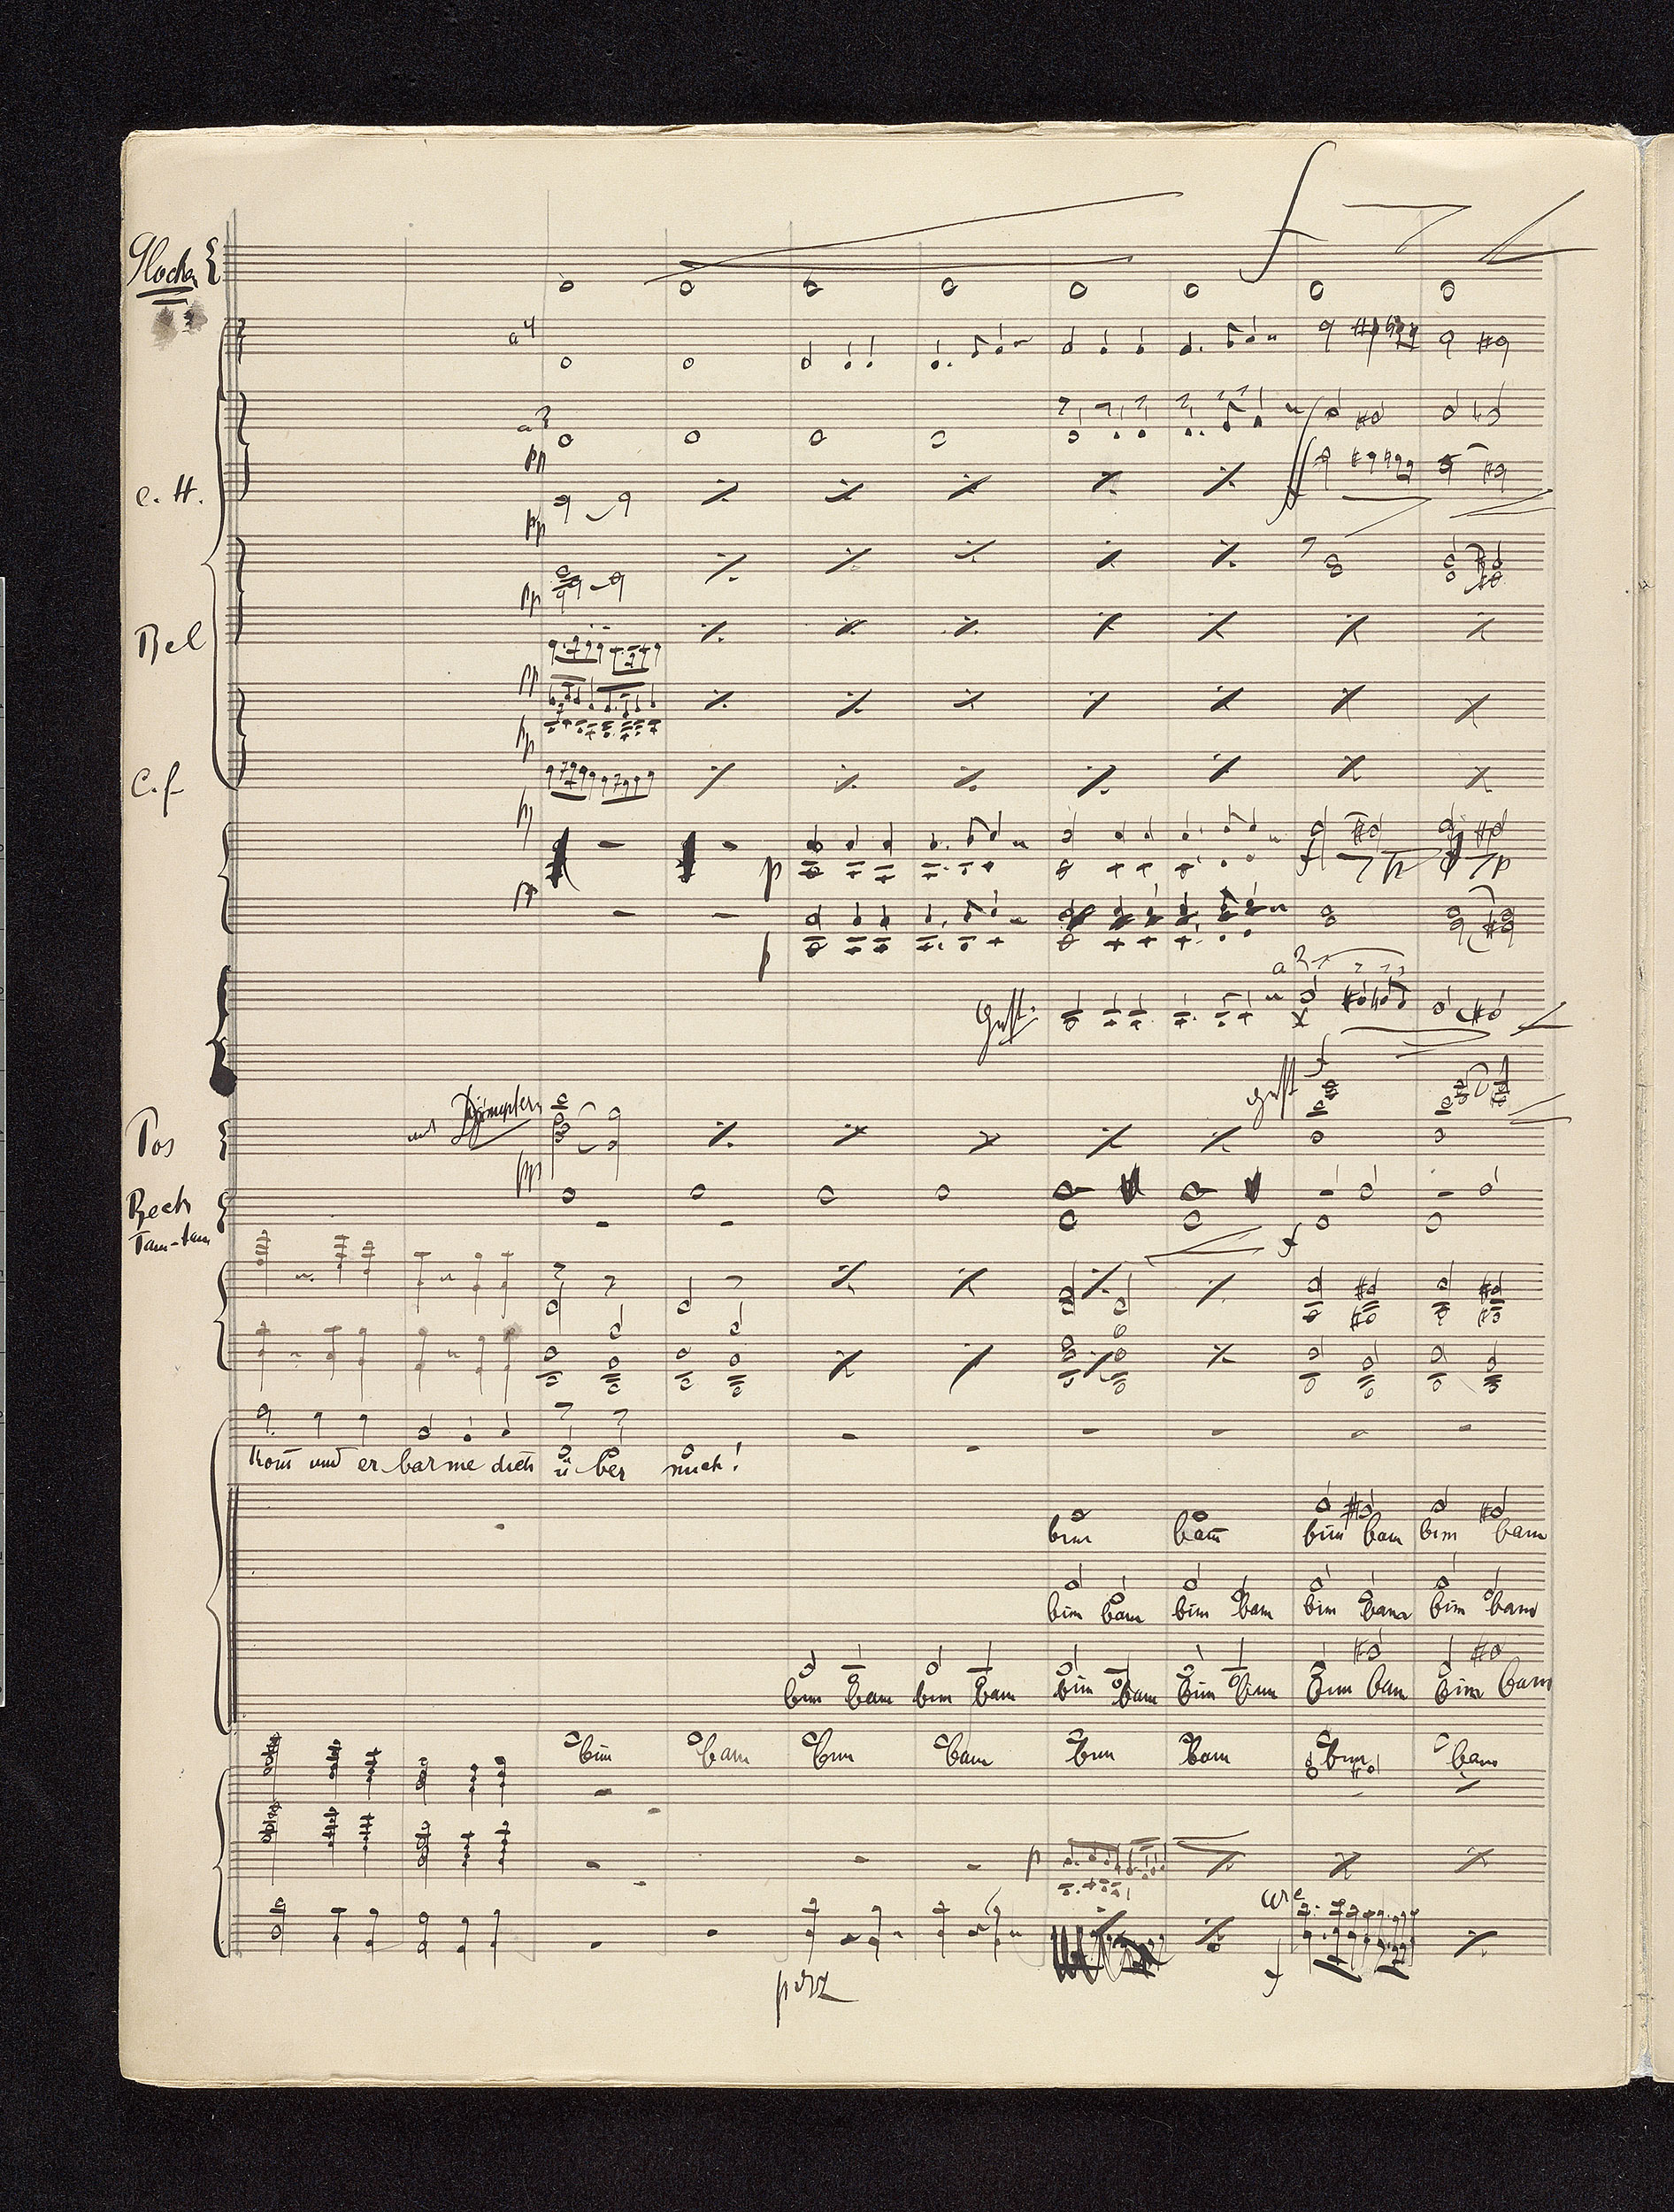 Glocken
a 4
a 2
pp
C. H.
pp
pp
Bcl
pp
pp
C. f
p
p
a 2
f
mit Dämpfern
Pos
pp
Beck
Tam-tam
f
Kom̄ und er barme dich ü ber mich!
bim bam bim bam bim bam
bim bam bim bam bim bam bim bam
bim bam bim bam bim bam bim bam bim bam bim bam
bim bam bim bam bim bam bim bam
p
arc
f
p pizz